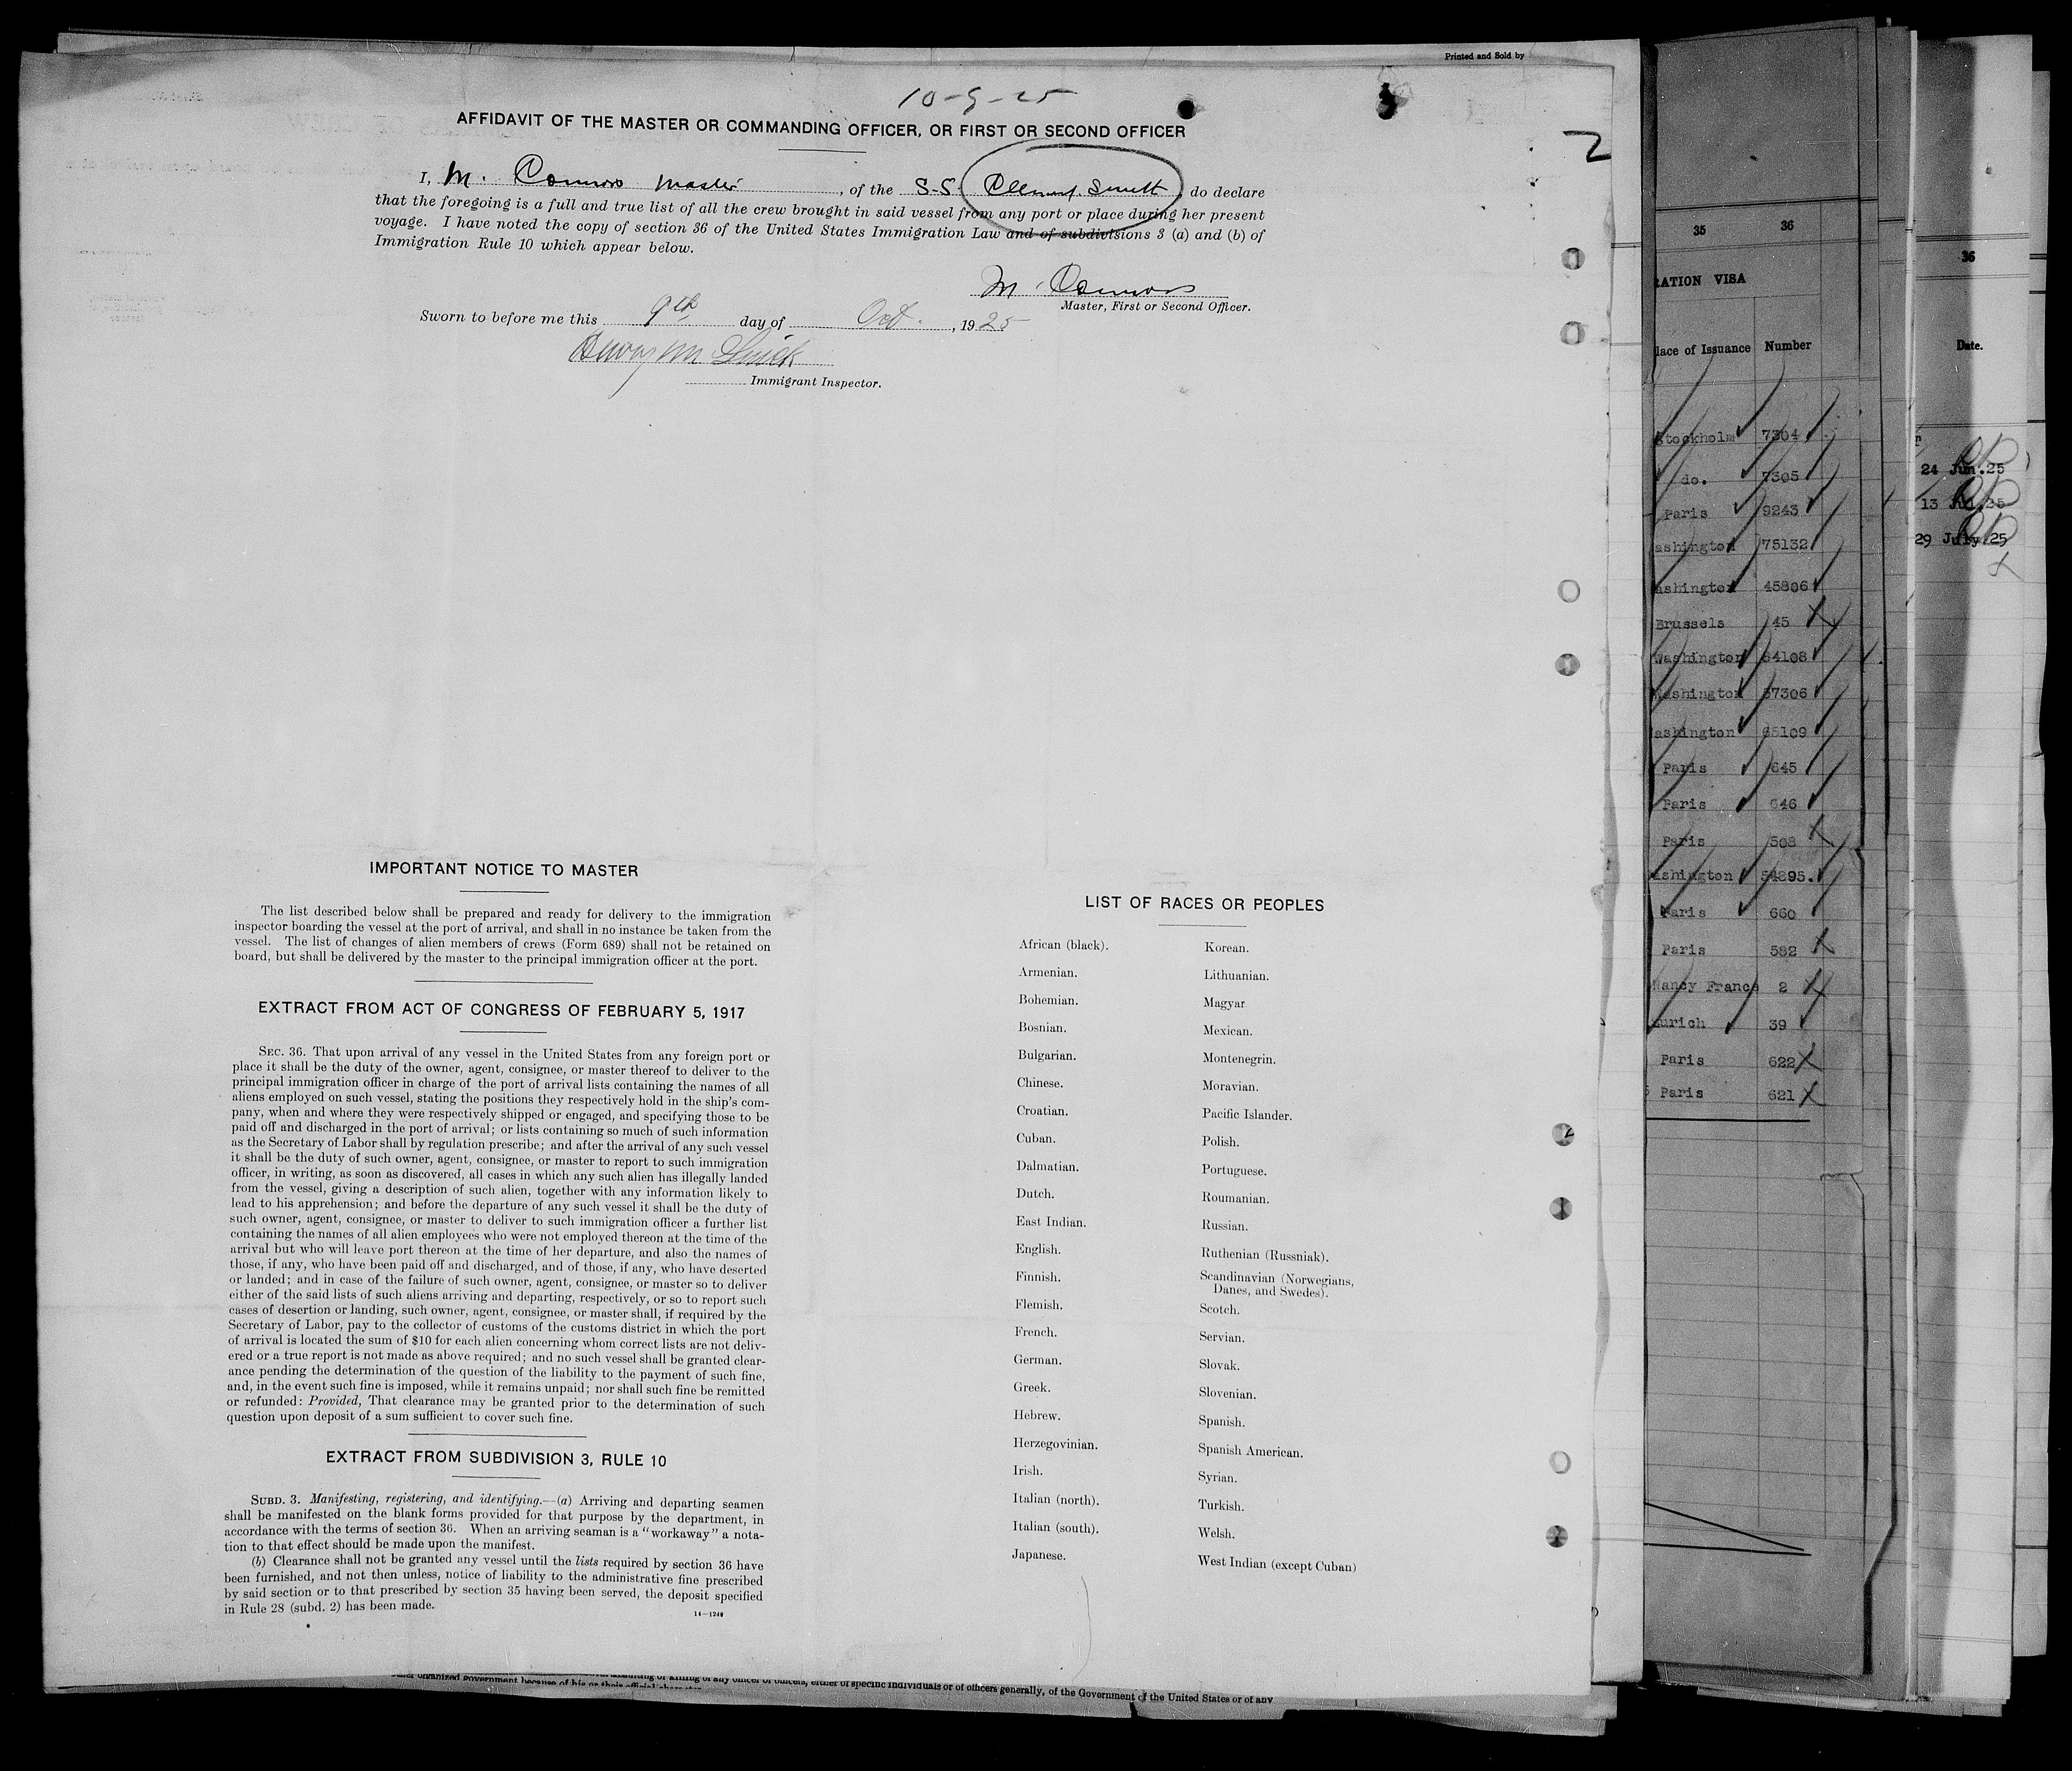 Printed and Sold by
10-9-25
AFFIDAVIT OF THE MASTER OR COMMANDING OFFICER, OR FIRST OR SECOND OFFICER
2
I, M. Connors Master, of the S-S. Smith do declare
that the foregoing is a full and true list of all the crew brought in said vessel from any port or place during her present
voyage. I have noted the copy of section 36 of the United States Immigration Law and of subdivisions 3 (a) and (b) of
Immigration Rule 10 which appear below.
M. Connors
Master, First or Second Officer.
Sworn to before me this 9th day of Oct. , 1925
Immigrant Inspector.
IMPORTANT NOTICE TO MASTER
The list described below shall be prepared and ready for delivery to the immigration
inspector boarding the vessel at the port of arrival, and shall in no instance be taken from the
vessel. The list of changes of alien members of crews (Form 689) shall not be retained on
board, but shall be delivered by the master to the principal immigration officer at the port.
EXTRACT FROM ACT OF CONGRESS OF FEBRUARY 5, 1917
SEC. 36. That upon arrival of any vessel in the United States from any foreign port or
place it shall be the duty of the owner, agent, consignee, or master thereof to deliver to the
principal immigration officer in charge of the port of arrival lists containing the names of all
aliens employed on such vessel, stating the positions they respectively hold in the ship's com-
pany, when and where they were respectively shipped or engaged, and specifying those to be
paid off and discharged in the port of arrival; or lists containing so much of such information
as the Secretary of Labor shall by regulation prescribe; and after the arrival of any such vessel
it shall be the duty of such owner, agent, consignee, or master to report to such immigration
officer, in writing, as soon as discovered, all cases in which any such alien has illegally landed
from the vessel, giving a description of such alien, together with any information likely to
lead to his apprehension; and before the departure of any such vessel it shall be the duty of
such owner, agent, consignee, or master to deliver to such immigration officer a further list
containing the names of all alien employees who were not employed thereon at the time of the
arrival but who will leave port thereon at the time of her departure, and also the names of
those, if any, who have been paid off and discharged, and of those, if any, who have deserted
or landed; and in case of the failure of such owner, agent, consignee, or master so to deliver
either of the said lists of such aliens arriving and departing, respectively, or so to report such
cases of desertion or landing, such owner, agent, consignee, or master shall, if required by the
Secretary of Labor, pay to the collector of customs of the customs district in which the port
of arrival is located the sum of $10 for each alien concerning whom correct lists are not deliv-
ered or a true report is not made as above required; and no such vessel shall be granted clear-
ance pending the determination of the question of the liability to the payment of such fine,
and, in the event such fine is imposed, while it remains unpaid; nor shall such fine be remitted
or refunded: Provided, That clearance may be granted prior to the determination of such
question upon deposit of a sum sufficient to cover such fine.
EXTRACT FROM SUBDIVISION 3, RULE 10
SUBD. 3. Manifesting, registering, and identifying.—(a) Arriving and departing seamen
shall be manifested on the blank forms provided for that purpose by the department, in
accordance with the terms of section 36. When an arriving seaman is a "workaway" a nota-
tion to that effect should be made upon the manifest.
(b) Clearance shall not be granted any vessel until the lists required by section 36 have
been furnished, and not then unless, notice of liability to the administrative fine prescribed
by said section or to that prescribed by section 35 having been served, the deposit specified
in Rule 28 (subd. 2) has been made.
14—1240
LIST OF RACES OR PEOPLES
African (black).
Armenian.
Bohemian.
Bosnian.
Bulgarian.
Chinese.
Croatian.
Cuban.
Dalmatian.
Dutch.
East Indian.
English.
Finnish.
Flemish.
French.
German.
Greek.
Hebrew.
Herzegovinian.
Irish.
Italian (north).
Italian (south).
Japanese.
Korean.
Lithuanian.
Magyar
Mexican.
Montenegrin.
Moravian.
Pacific Islander.
Polish.
Portuguese.
Roumanian.
Russian.
Ruthenian (Russniak).
Scandinavian (Norwegians,
Danes, and Swedes).
Scotch.
Servian.
Slovak.
Slovenian.
Spanish.
Spanish American.
Syrian.
Turkish.
Welsh.
West Indian (except Cuban)
of any officer or officers, either of specific individuals or of officers generally, of the Government of the United States or of any
organized government because of his or their official
35 36
RATION VISA
lace of Issuance Number
Stockholm 7304
do. 7305
Paris 9243
ashington 75132
ashington 45806
Brussels 45
Washington 84108
Washington 57306
ashington 65109
Paris 645
Paris 646
Paris 508
ashington 54895.
Paris 660
Paris 582
Nancy France 2
urich 39
Paris 622
Paris 621
36
Date.
24 Jun.25
13 25
29 July 25